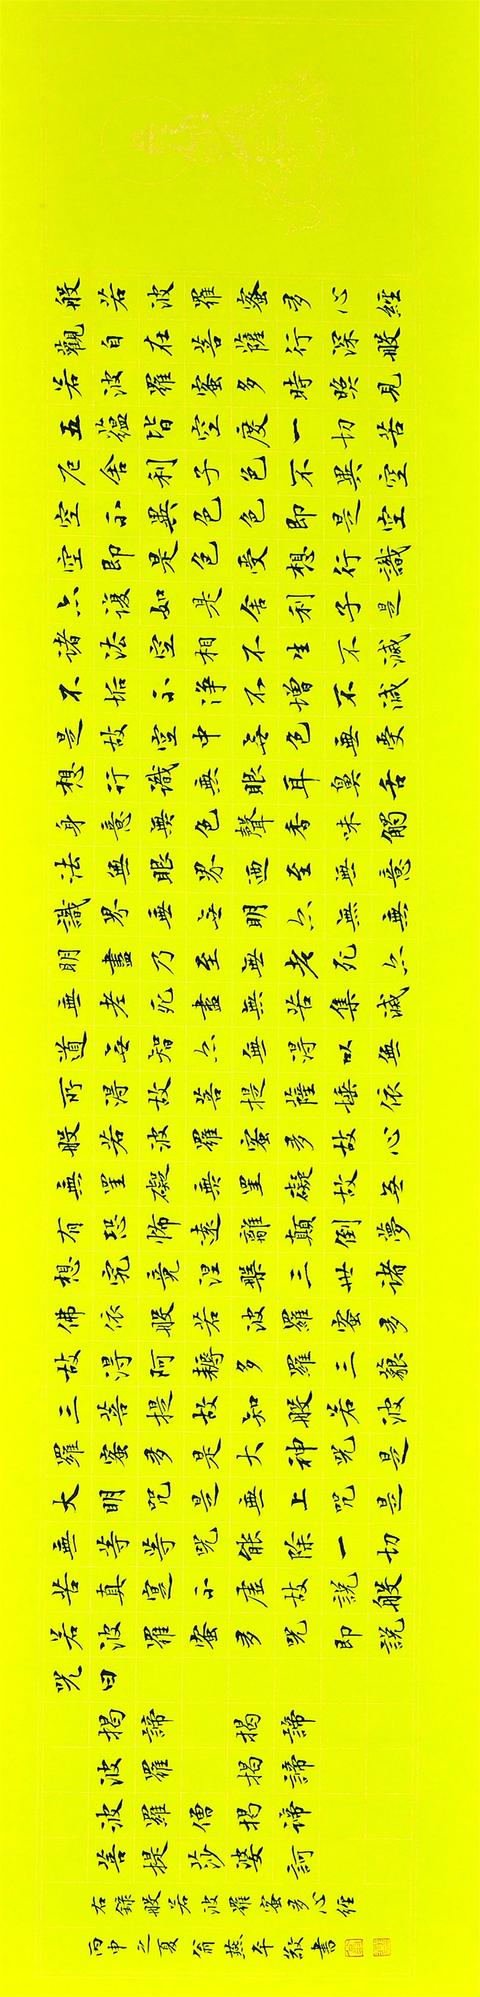 般若波羅蜜多心經
觀自在菩薩行深般
若波羅蜜多時照見
五蘊皆空度一切苦
厄舍利子色不異空
空不異色色即是空
空即是色受想行識
亦復如是舍利子是
諸法空相不生不滅
不垢不淨不增不減
是故空中無色無受
想行識無眼耳鼻舌
身意無色聲香味觸
法無眼界迺至無意
識界無無明亦無無
明盡乃至無老死亦
無老死盡無苦集滅
道無智亦無得以無
所得故菩提薩埵依
般若波羅蜜多故心
無罣礙無罣礙故無
有恐怖遠離顛倒夢
想究竟涅槃三世諸
佛依般若波羅蜜多
故得阿耨多羅三藐
三菩提故知般若波
羅蜜多是大神咒是
大明咒是無上咒是
無等等咒能除一切
苦真實不虛故說般
若波羅蜜多咒即說
咒曰
揭諦揭諦
波羅揭諦
波羅僧揭諦
菩提莎婆訶
右錄般若波羅蜜多心經
丙申之夏翁燕平敬書